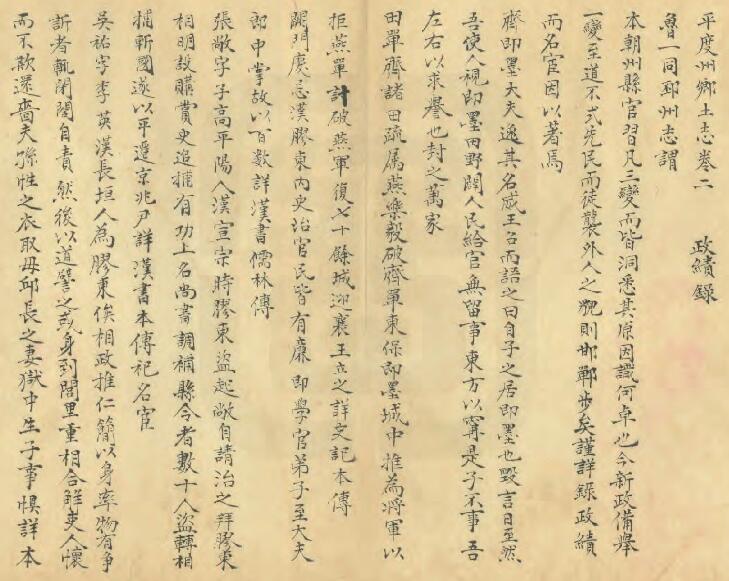 平度州鄉土志卷二　　政績錄
魯一同邳州志謂
本朝州縣官習凡三變而皆洞悉其原因識何卓也今新政備舉
一變至道不式先民而徒襲外人之貌則邯鄲步矣謹詳錄政績
而名宦因以著焉
齊即墨大夫逸其名威王召而語之曰自子之居即墨也毀言日至然
吾使人視即墨田野闢人民給官無留事東方以寧是子不事吾
左右以求譽也封之萬家
田單齊諸田疏属燕樂毅破齊單東保即墨城中推為將軍以
拒燕單計破燕軍復七十餘城迎襄王立之詳史記本傳
闕門慶忌漢膠東內史治官民皆有廉即學官弟子至大夫
郎中掌故以百數詳漢書儒林傳
張敞字子高平陽人漢宣宗時膠東盜起敞自請治之拜膠東
相明設購賞吏追捕有功上名尚書調補縣令者數十人盜轉相
捕斬國遂以平遷京兆尹詳漢書本傳祀名宦
吳祐字季英漢長垣人為膠東侯相政推仁簡以身率物有争
訴者輒閉閤自責然後以道譬之或身到閭里重相合雖吏人懷
而不欺還嗇夫孫性之衣取毋邱長之妻獄中生子事惧詳本